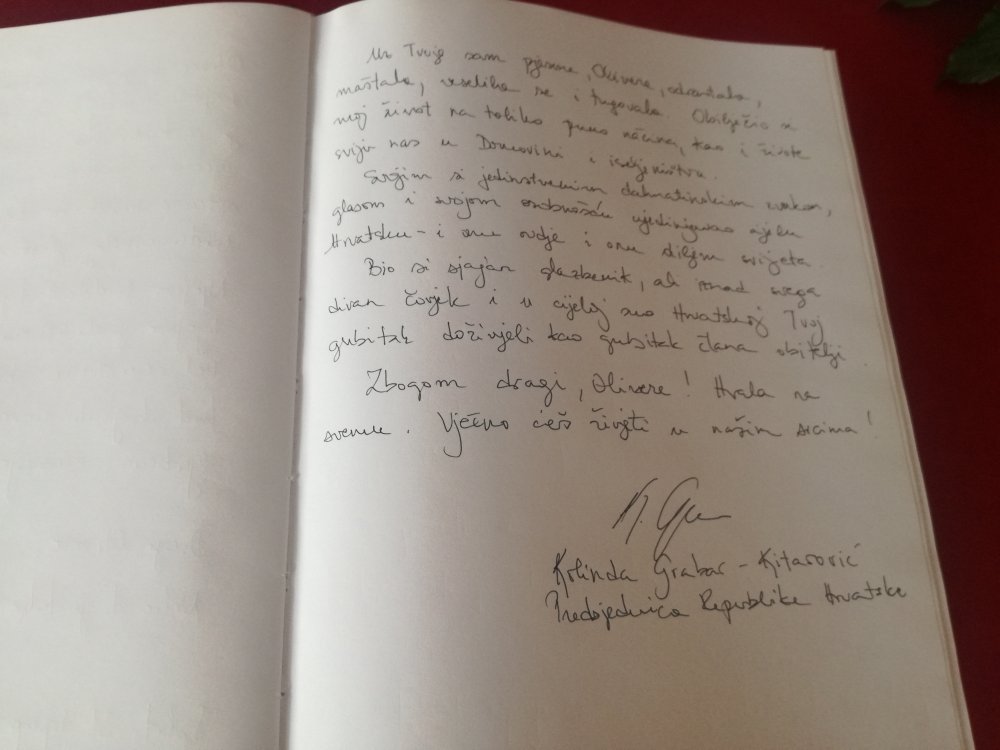 Uz Tvoje sam pjesme, Olivere, odrastala,
maštala, veselila se i tugovala. Obilježio si
moj život na toliko puno načina, kao i živote
sviju nas u Domovini i iseljeništvu.
Svojim si jedinstvenim dalmatinskim zvukom,
glasom i svojom osobnošću ujedinjavao cijelu
Hrvatsku - i onu ovdje i onu diljem svijeta
Bio si sjajan glazbenik, ali iznad svega
divan čovjek i u cijeloj smo Hrvatskoj Tvoj
gubitak doživjeli kao gubitak člana obitelji
Zbogom dragi, Olivere! Hvala na
svemu. Vječno ćeš živjeti u našim srcima!
Kolinda Grabar - Kitarović
Predsjednica Republike Hrvatske